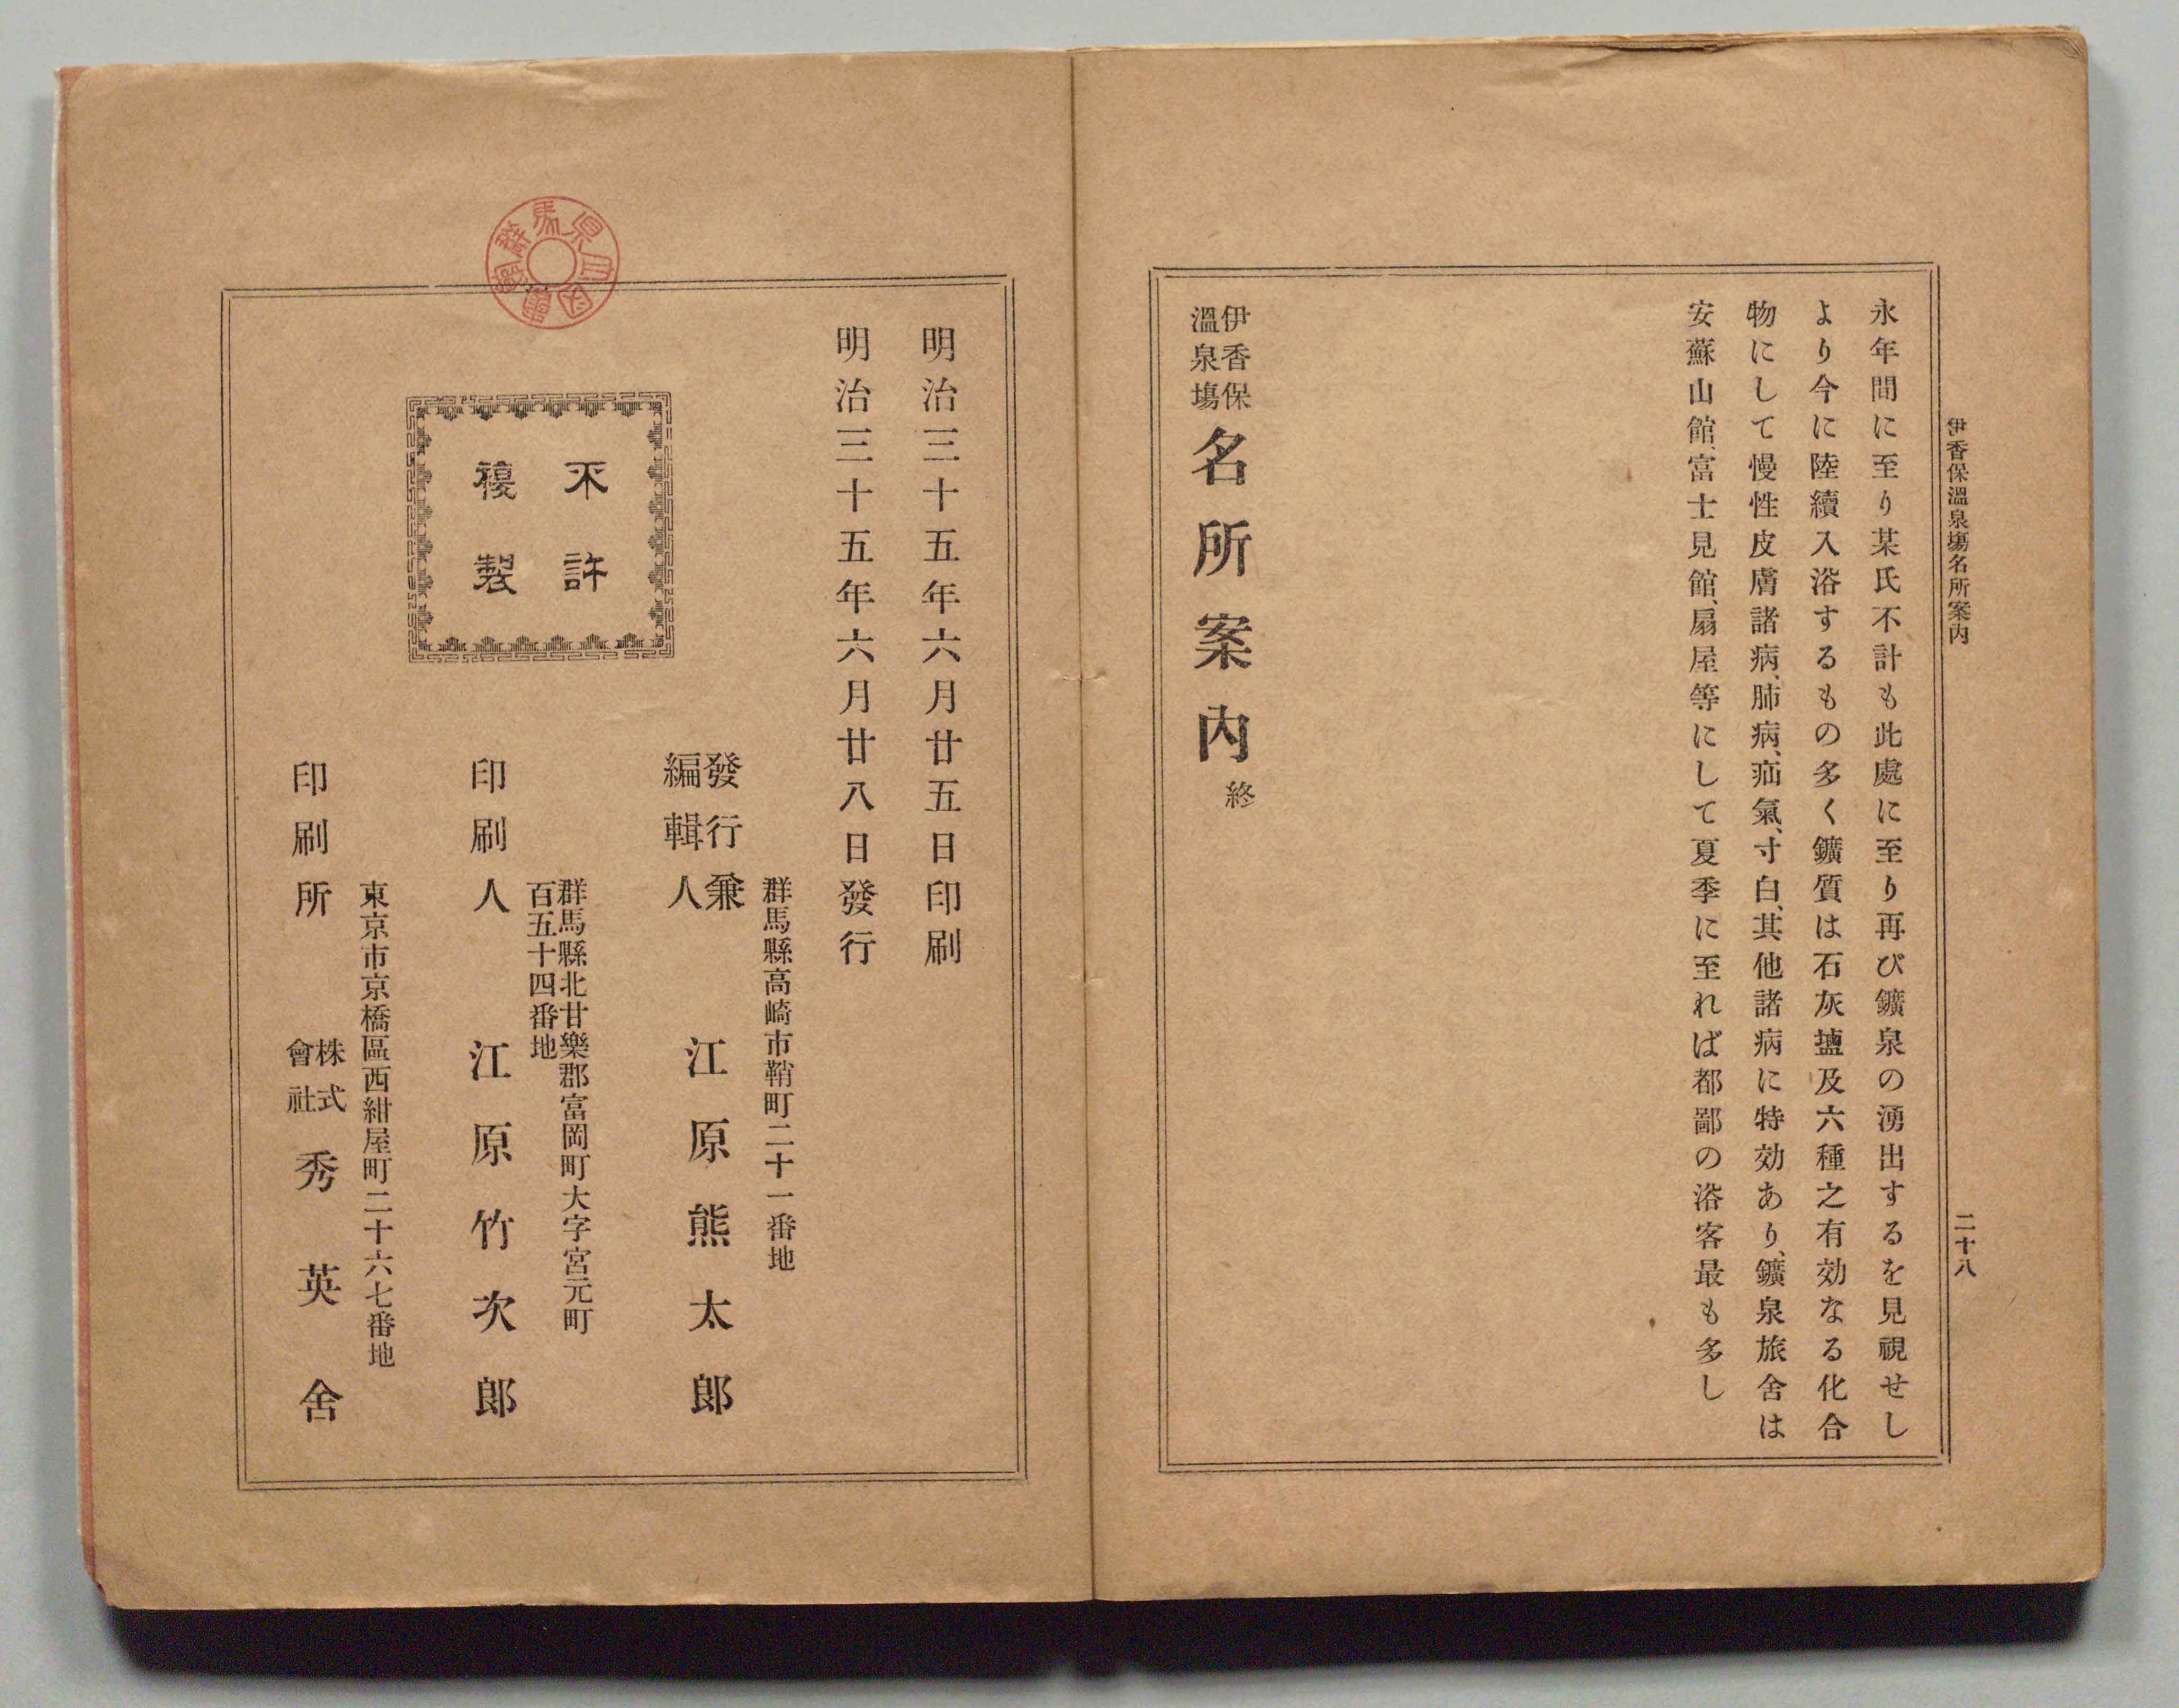 伊香保溫泉塲名所案內
二十八
永年間に至り某氏不計も此處に至り再び鑛泉の湧出するを見視せし
より今に陸續入浴するもの多く鑛質は石灰鹽及六種之有効なる化合
物にして慢性皮膚諸病、肺病、疝氣、寸白、其他諸病に特効あり、鑛泉旅舍は
安蘇山館、富士見館、扇屋等にして夏季に至れば都鄙の浴客最も多し
伊香保
溫泉塲
名所案內
終
明治三十五年六月廿五日印刷
明治三十五年六月廿八日發行
不許
複製
群馬縣高崎市鞘町二十一番地
發行兼
編輯人
江原熊太郎
群馬縣北甘樂郡富岡町大字宮元町
百五十四番地
印刷人
江原竹次郎
東京市京橋區西紺屋町二十六七番地
印刷所
株式
會社
秀英舍